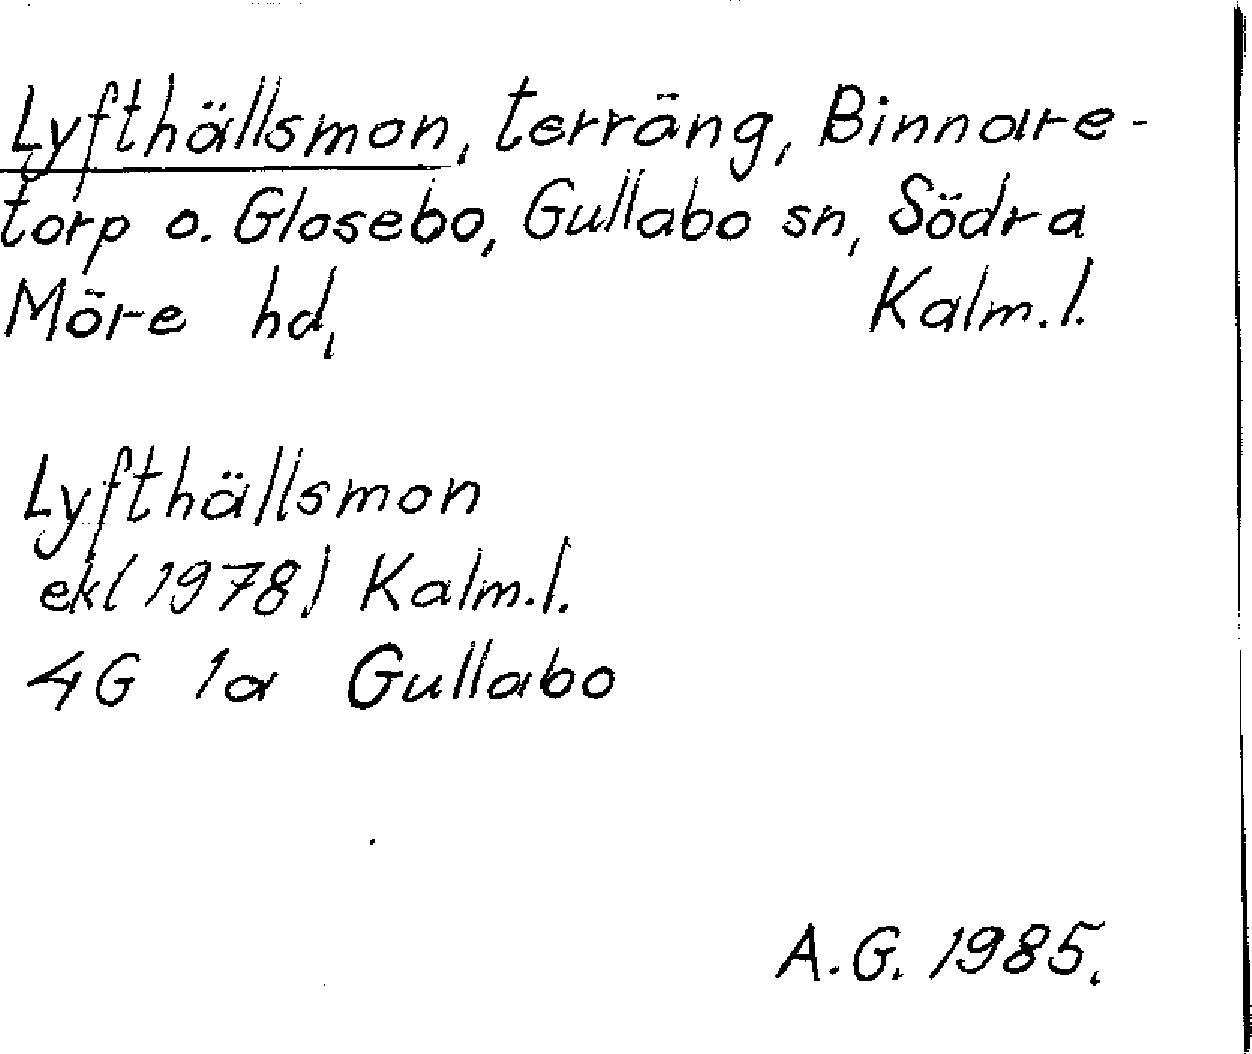 Lyfthällsmon, terräng, Binnare-
torp o. Glosebo, Gullabo sn, Södra
Möre hd, Kalm.l.
Lyfthällsmon
ek(1978) Kalm.l.
4G 1a Gullabo
A.G. 1985.